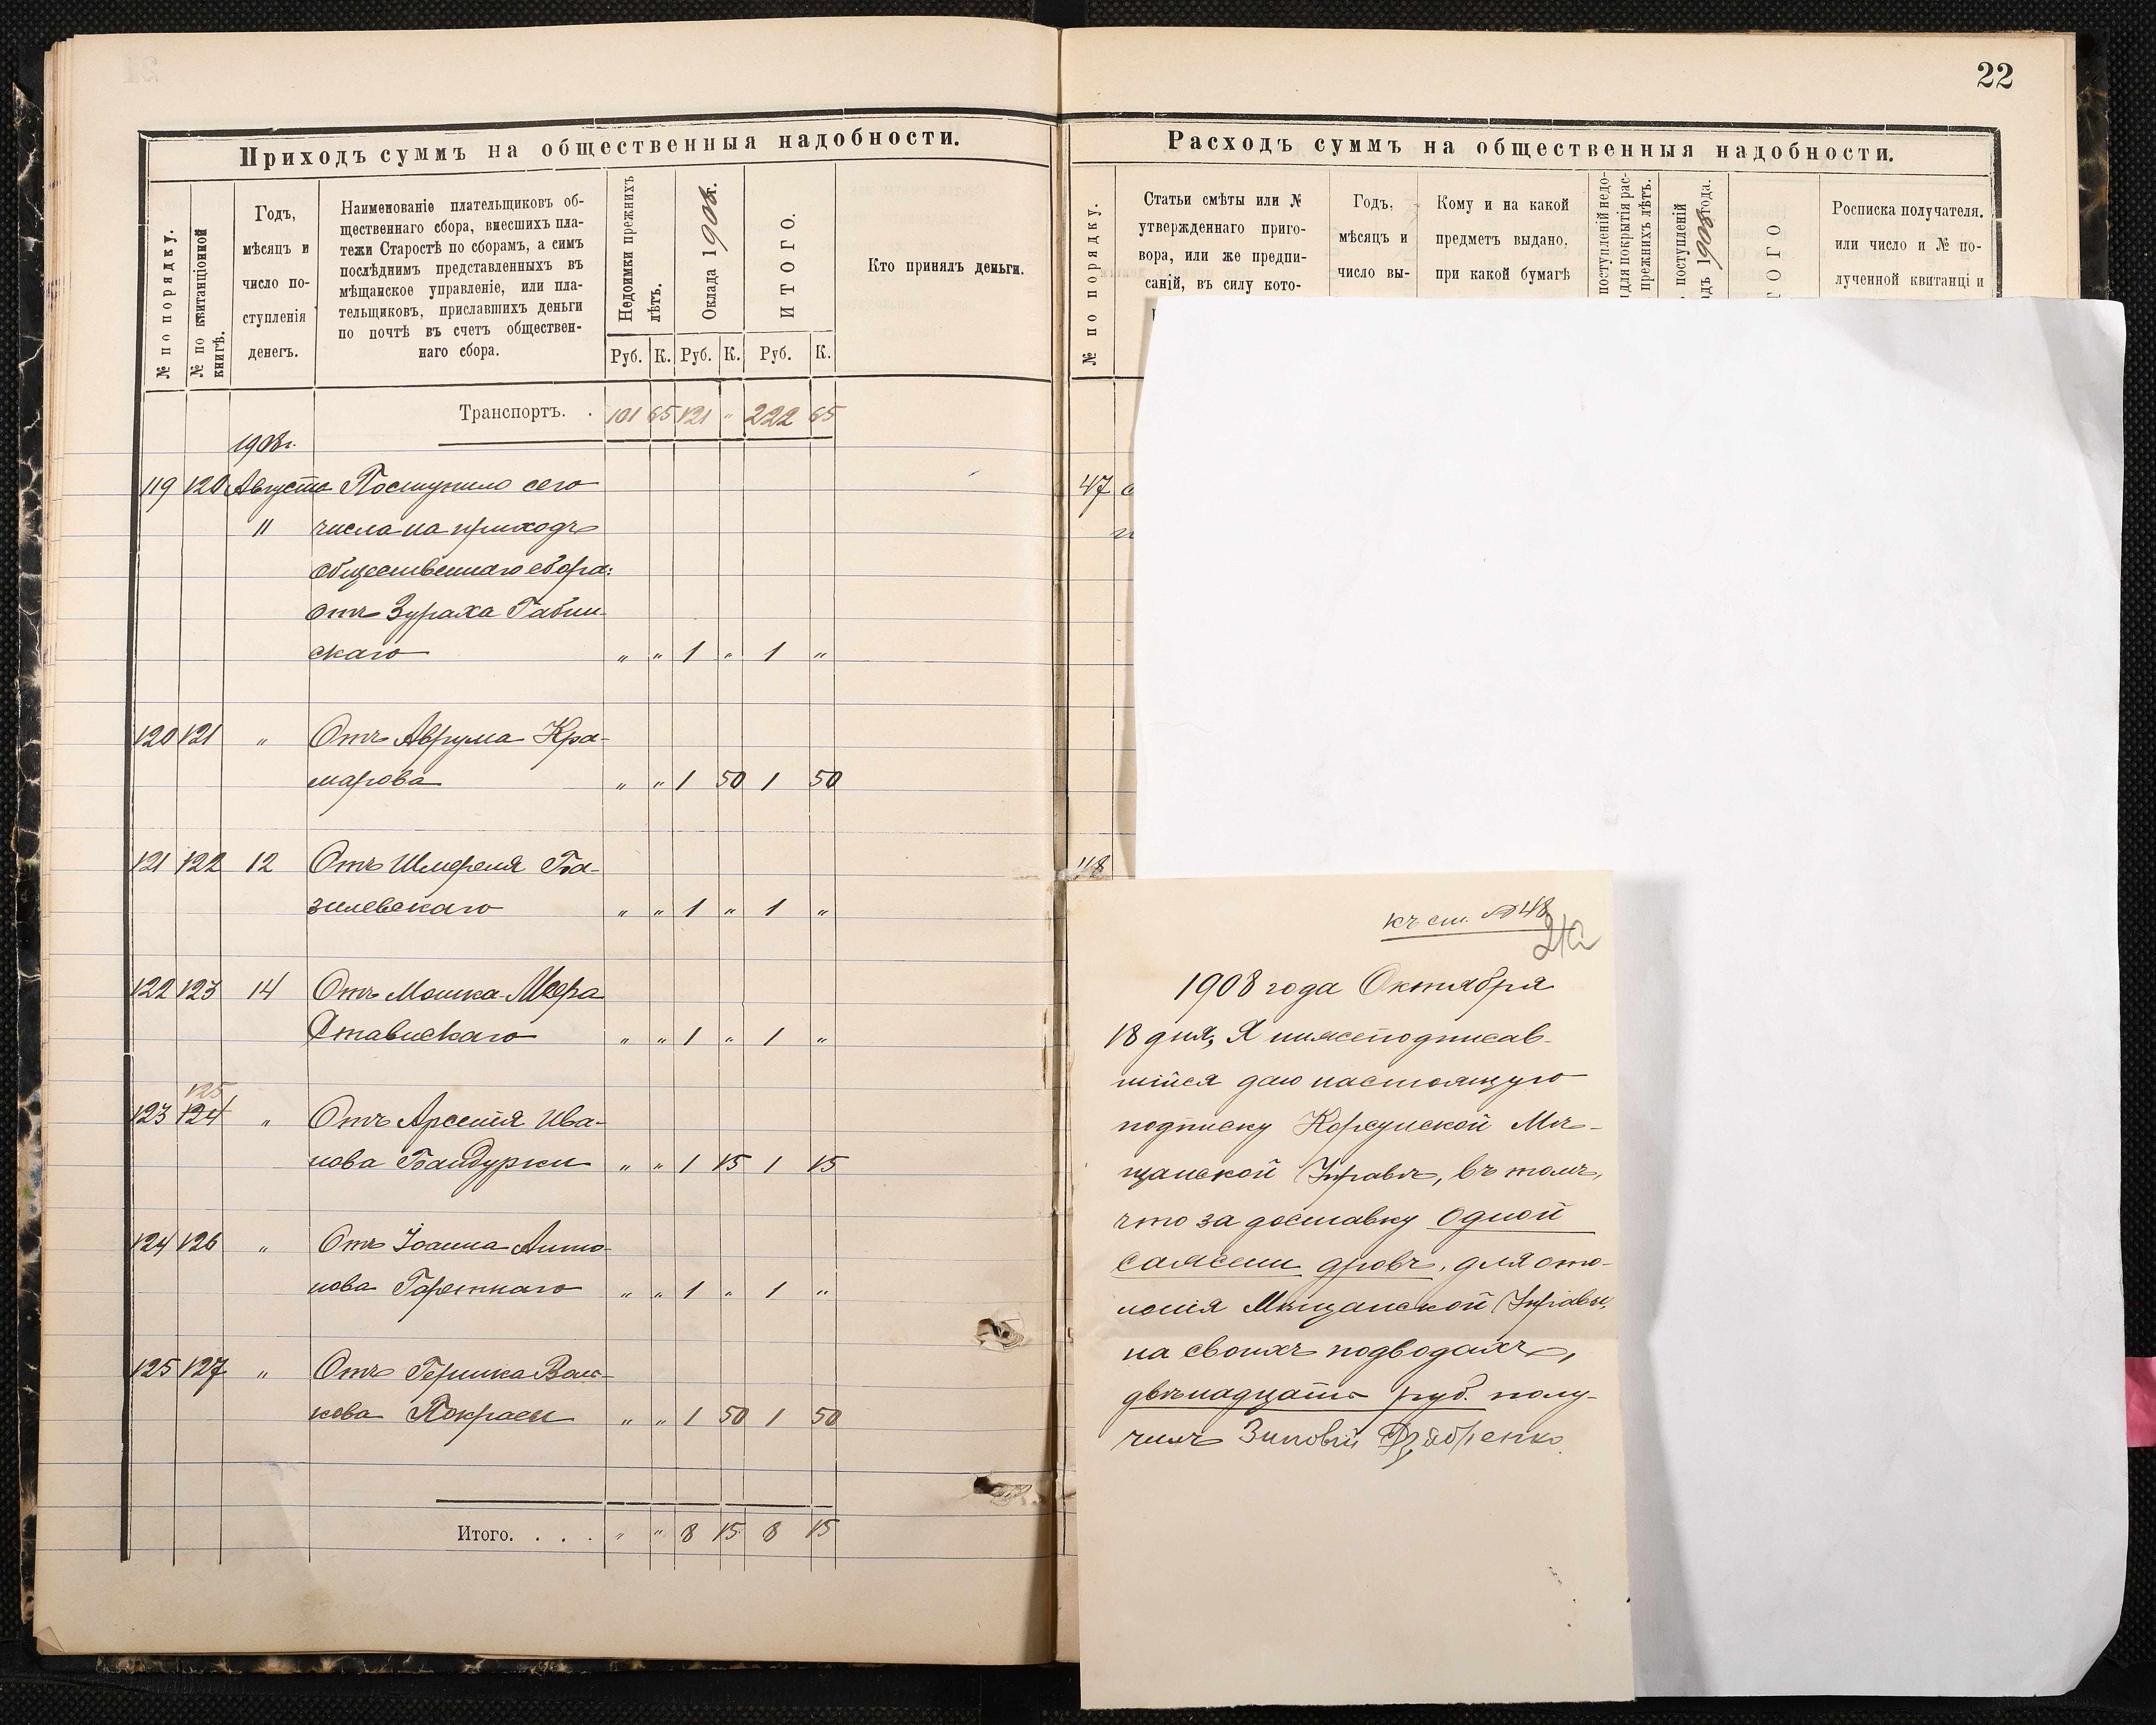 22
Приходъ суммъ на общественныя надобности.
№ по порядку.
№ по квитанціонной
книгѣ.
Годъ,
мѣсяцъ и
число по-
ступленія
денегъ.
Наименованіе плательщиковъ об-
щественнаго сбора, внесшихъ пла-
тежи Старостѣ по сборамъ, а симъ
послѣднимъ представленныхъ въ
мѣщанское управленіе, или пла-
тельщиковъ, приславшихъ деньги
по почтѣ въ счетъ обществен-
наго сбора.
Недоимки прежнихъ
лѣтъ.
Оклада 1908 г.
ИТОГО.
Кто принялъ деньги.
Руб. К. Руб. К. Руб. К.
Транспортъ. . 101 65 121 " 222 65
1908 г.
119 120 Августа Поступило сего
11 числа на приходъ
общественнаго сбора:
отъ Зураха Габин-
скаго " " 1 " 1 "
120 121 " Отъ Аврума Кра-
марова " " 1 50 1 50
121 122 12 Отъ Шмереля Ба-
зилевскаго " " 1 " 1 "
122 123 14 Отъ Мошка-Меера
Ставискаго " " 1 " 1 "
125
123 124 " Отъ Арсенія Ива-
нова Бандурки " " 1 15 1 15
124 126 " Отъ Іоанна Анто-
нова " " 1 " 1 "
125 127 " Отъ Гершка Вольковa Покрасы " " 1 50 1 50
Итого. . . . " " 8 15 8 15
Расходъ суммъ на общественныя надобности.
№ по порядку.
Статьи смѣты или №
утвержденнаго приго-
вора, или же предпи-
саній, въ силу кото-
Годъ,
мѣсяцъ и
число вы-
Кому и на какой
предметъ выдано,
при какой бумагѣ
поступленій недо-
для покрытія рас-
прежнихъ лѣтъ.
поступленій
1908 года.
ТОГО
Росписка получателя.
или число и № по-
лученной квитанціи
47
48
къ ст. № 48
1908 года Октября
18 дня, Я нижеподписав-
шійся даю настоящую
подписку Корсунской Мѣ-
щанской Управѣ, въ томъ,
что за доставку одной
сажени дровъ, для ото-
пленія Мѣщанской Управы,
на своихъ подводахъ,
двѣнадцать руб. полу-
чилъ Зиновій